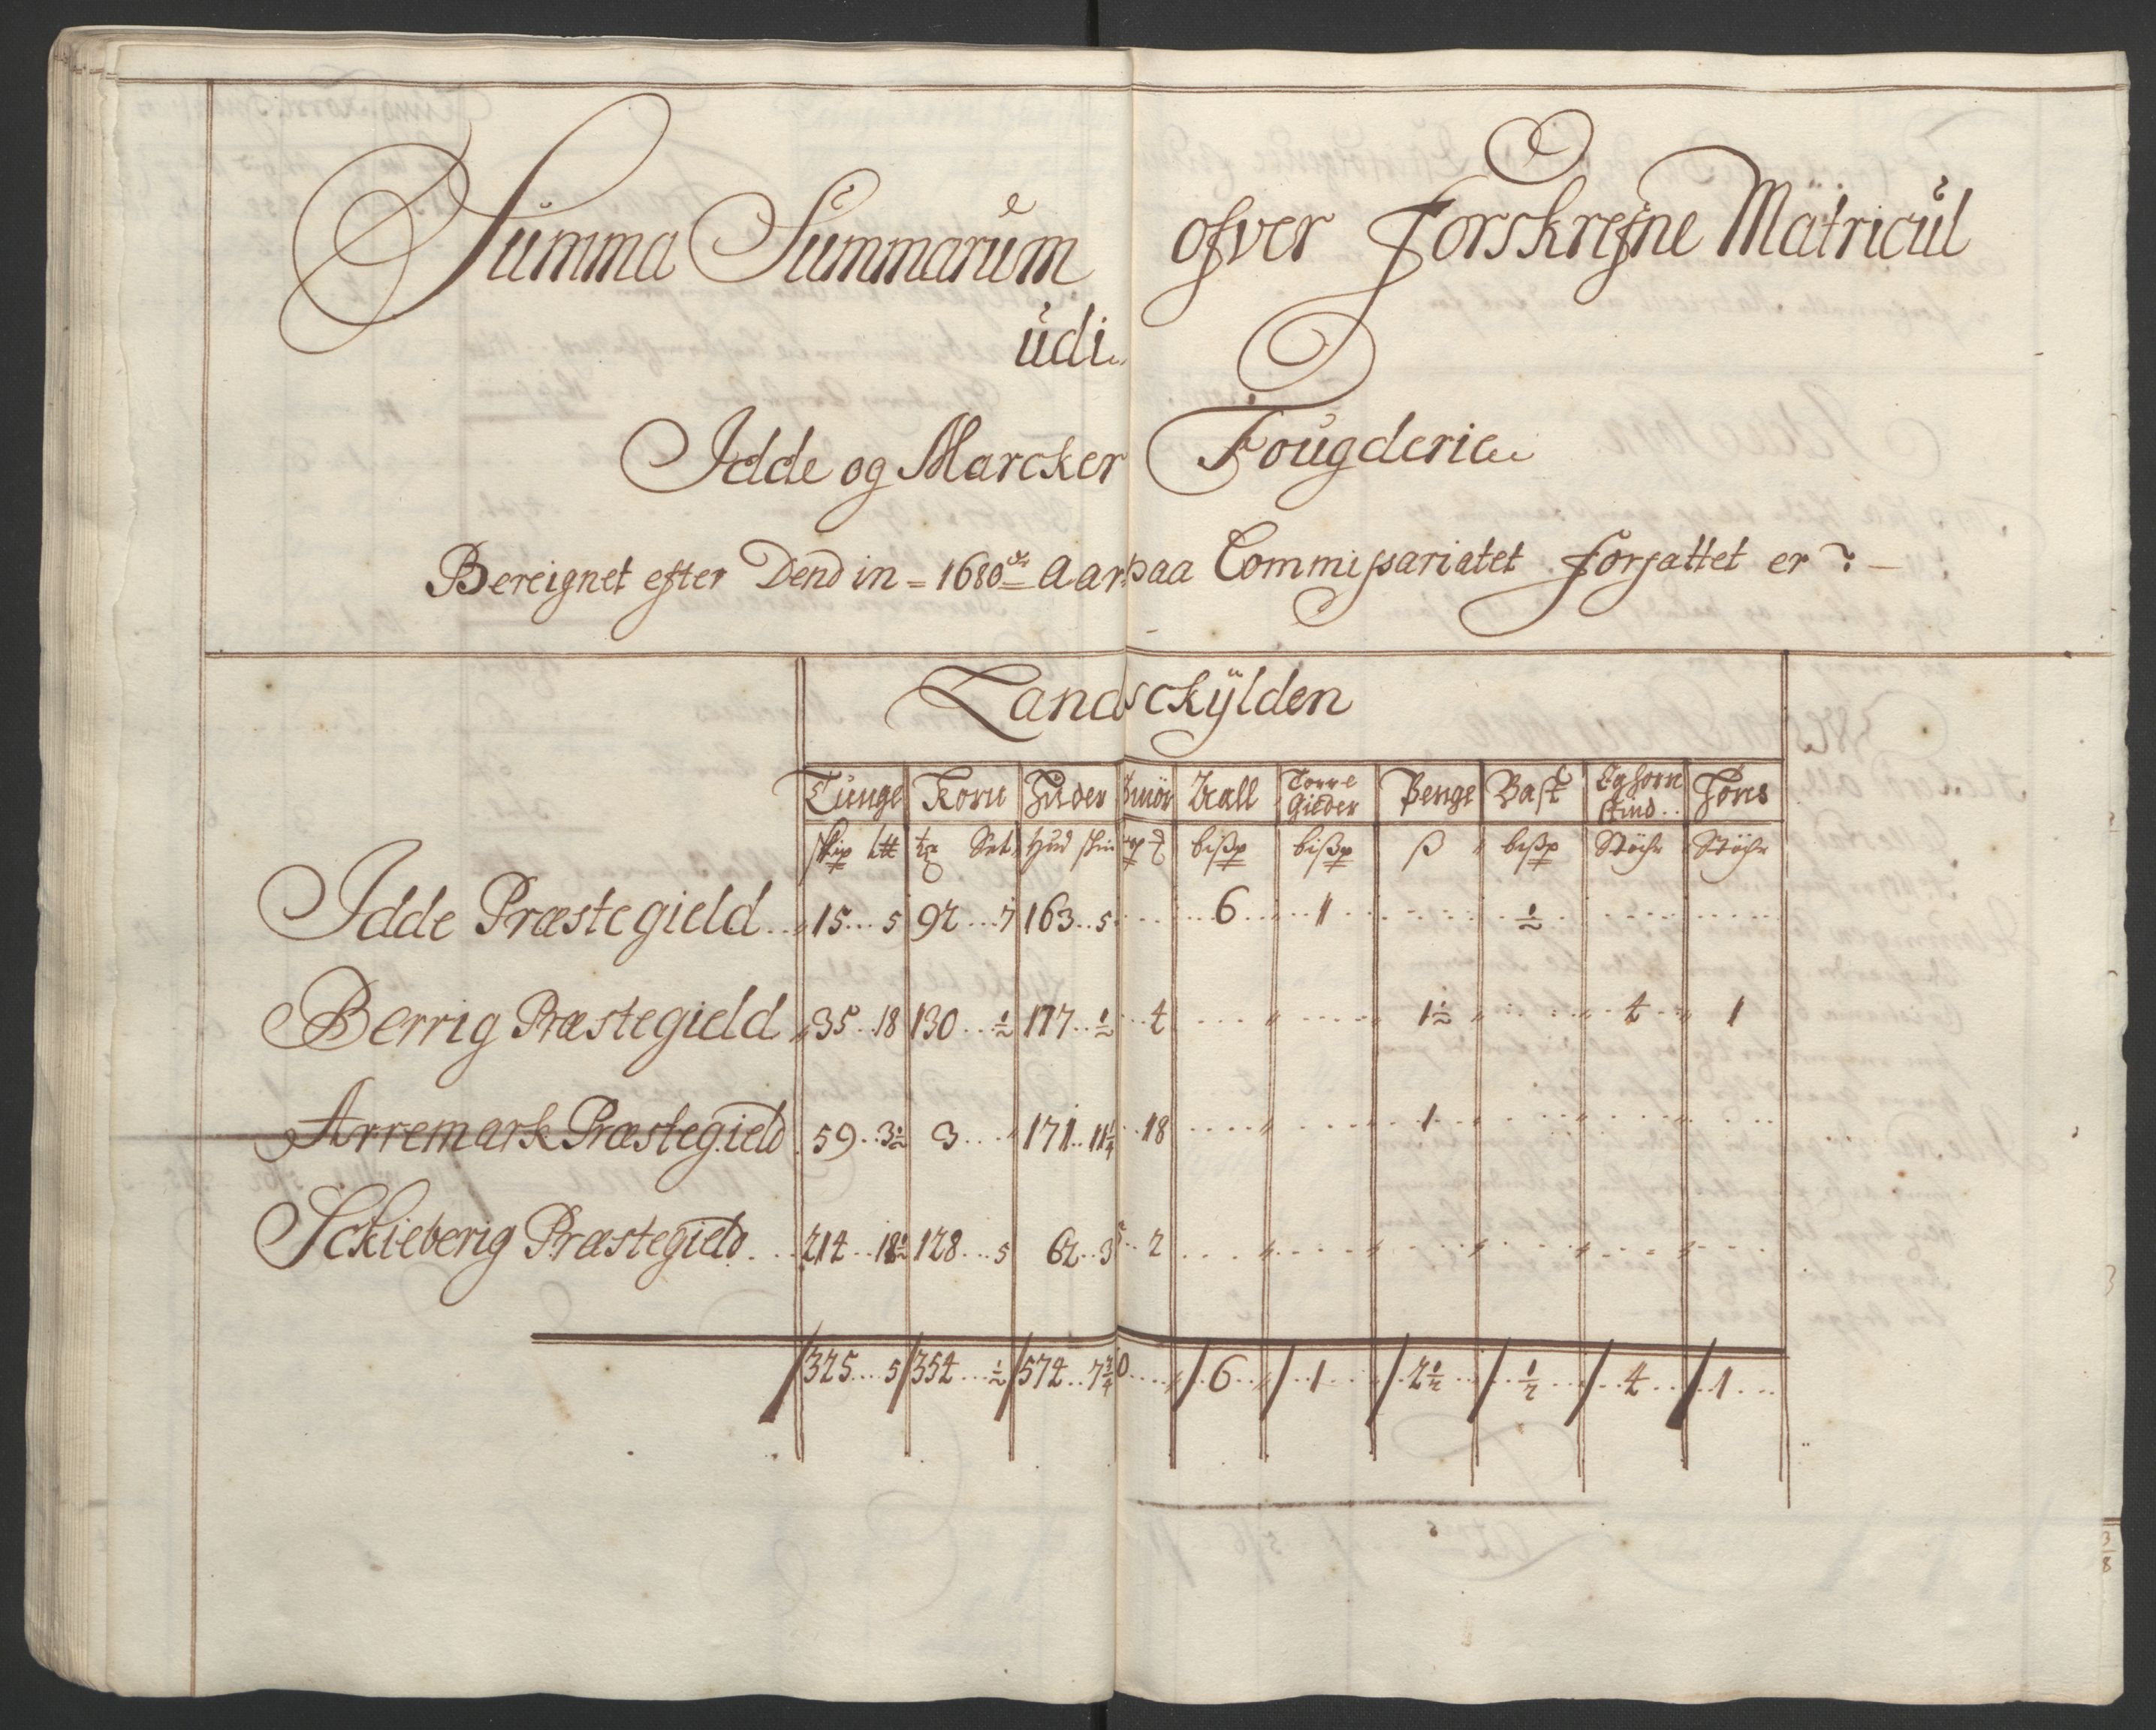 Summa Summarum ofver Forskrefne Matricul
udi
Idde og Marcker Fougderie
Bereignet efter Dend in = 1680 Aar paa Commissariatet forfattet er
Landschÿlden
Tunge Korn Huder Smör Kall Torre Gieder Penge Bast Tørs
skip l℔ Hud skin bißp bißp ß bißp Støchr Støchr
Idde Præstegield 15 5 92 7 163 5 6 1 ½
Berrig Præstegield 35 18 130 ½ 177 ½ 4 1½ 4 1
Arremark Præstegield 59 3½ 3 171 11¼ 18 1
Sckieberig Præstegield 214 18½ 128 5 62 3 2
325 5 354 ½ 574 7¾ 6 1 2½ ½ 4 1
3/8